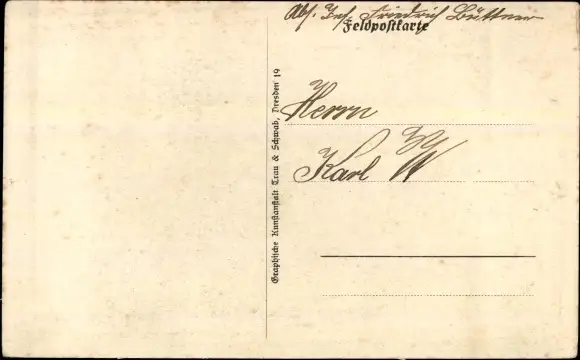 Abs. Inf. Friedrich Büttner
Feldpostkarte
Herrn
Karl W
Graphische Kunstanstalt Trau & Schwab, Dresden 19